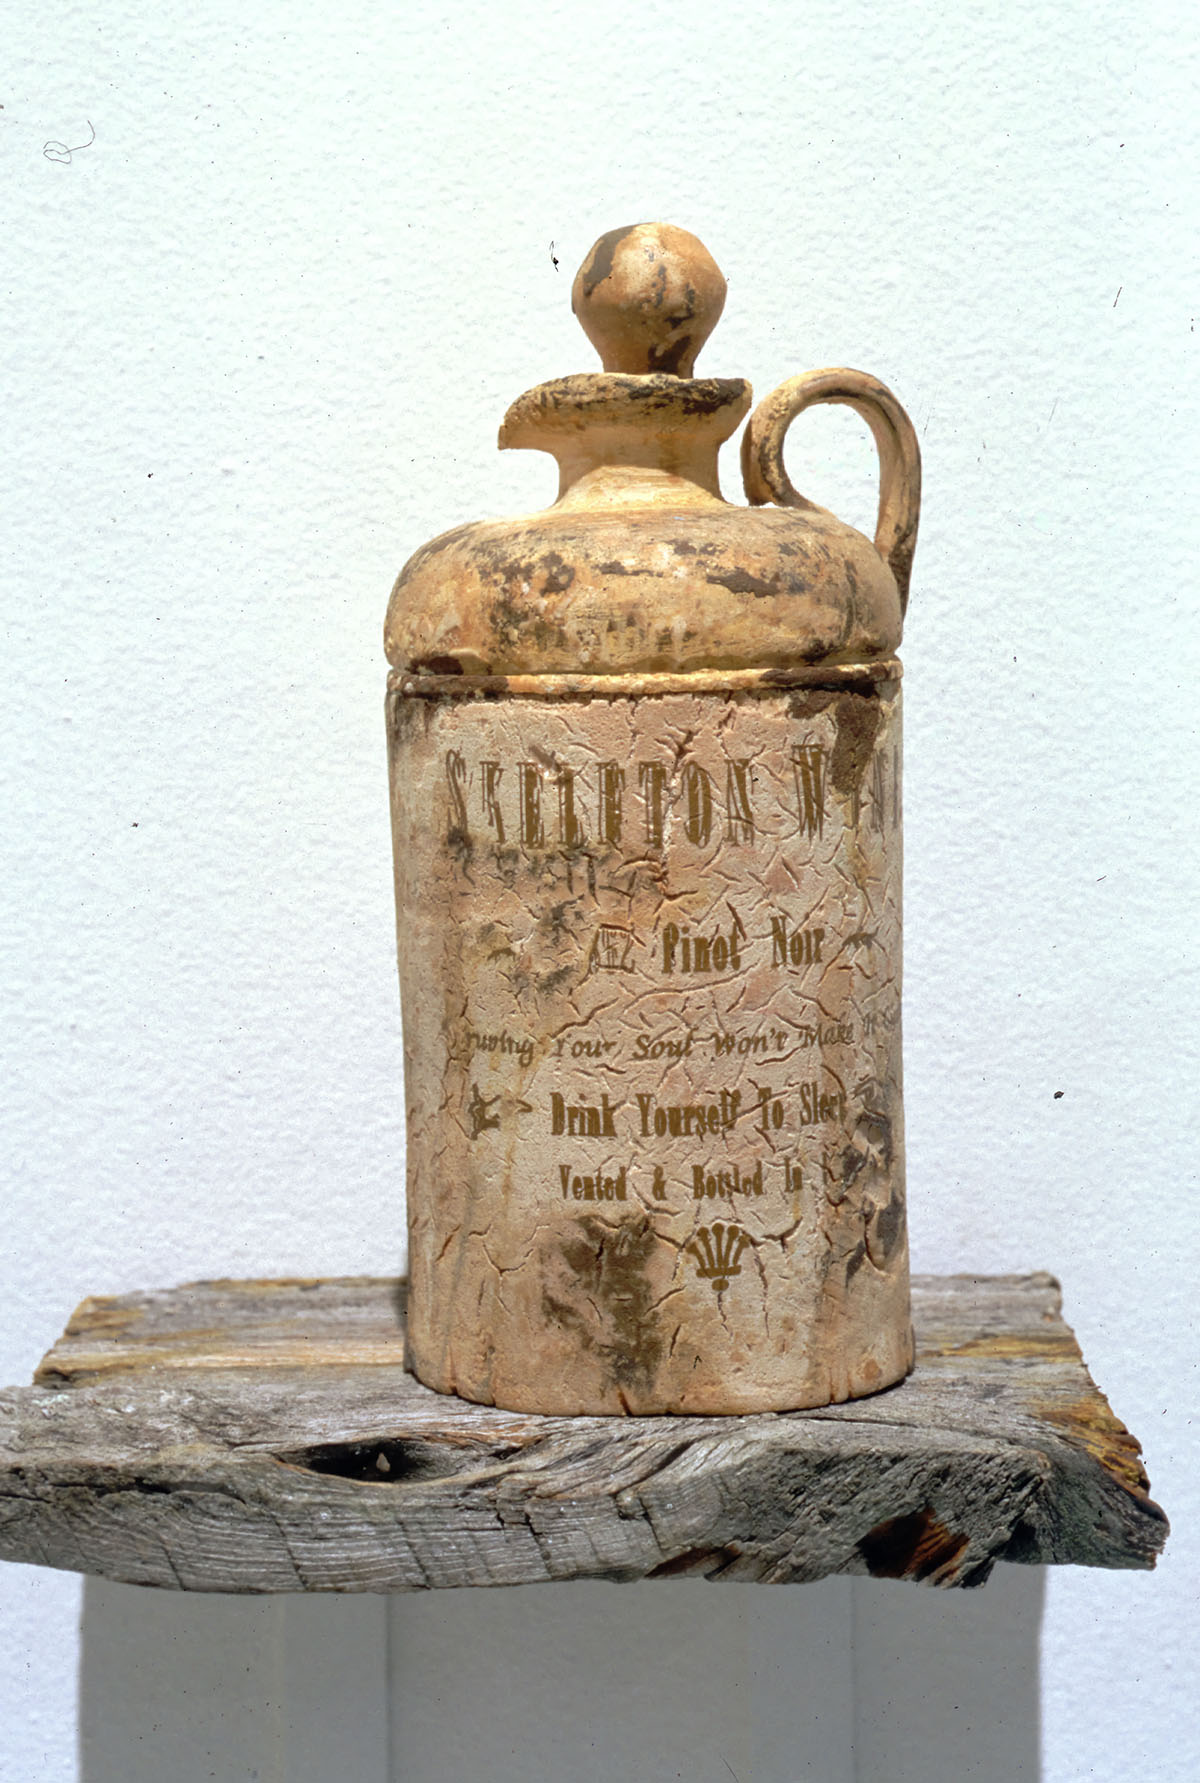 SKELETON WINE
Pinot Noir
Your Soul Won't Make It
Drink Yourself To Sleep
Vented & Bottled In